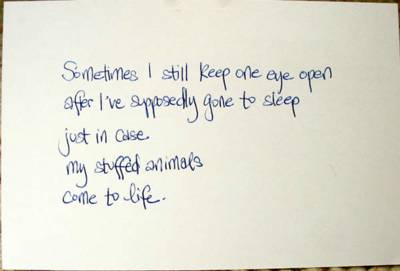 Sometimes I still keep one eye open
after I've supposedly gone to sleep
just in case.
my stuffed animals
come to life.